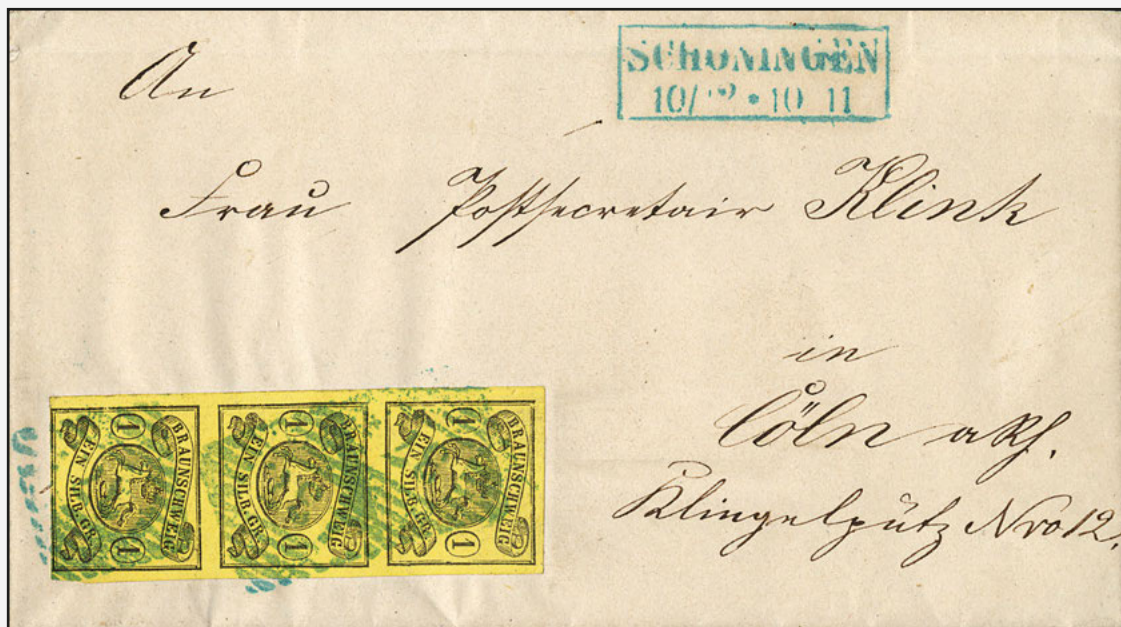 SCHÖNINGEN
10/12 • 10 11
An
Frau Postsecretair Klink
in
Cöln a/Rh.
Klingelpütz Nro 12.
BRAUNSCHWEIG
EIN SILB. GR.
1 1
BRAUNSCHWEIG
EIN SILB. GR.
1 1
BRAUNSCHWEIG
EIN SILB. GR.
1 1